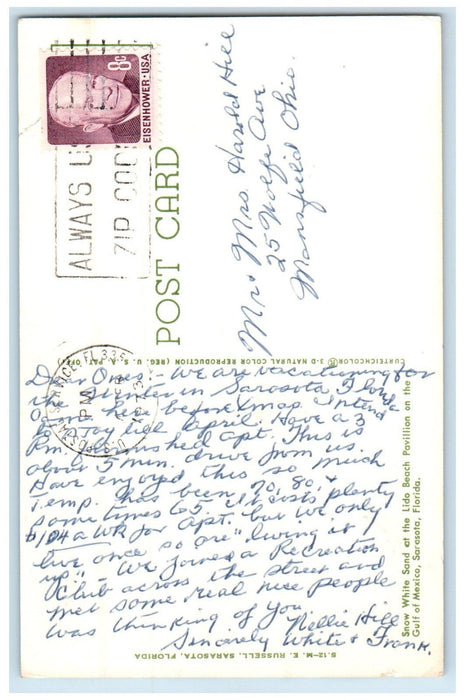 8c
EISENHOWER·USA
ALWAYS US
ZIP COD
POST CARD
Mr & Mrs. Harold Hill
25 Wolfe Ave
Mansfield Ohio.
CURTEICHCOLOR® 3-D NATURAL COLOR REPRODUCTION (REG. U. S. A. PAT. OFF.)
U.S. POSTAL SERVICE, FL 335
PM
Dear Ones - We are vacationing for
the winter in Sarasota Florida
Came here before Xmas. Intend
to stay till April. Have a 3
rm furnished Apt. This is
about 5 min. drive from us.
Have enjoyed this so much
Temp. has been 70, 80, &
sometimes 65. It costs plenty
$104 a WK for Apt. but we only
live once so are "living it
up". We joined a Recreation
Club across the street and
met some real nice people
Was thinking of you
Sincerely Nellie Hill
White & Frank.
Snow White Sand at the Lido Beach Pavilion on the
Gulf of Mexico, Sarasota, Florida.
S-12-M. E. RUSSELL, SARASOTA, FLORIDA